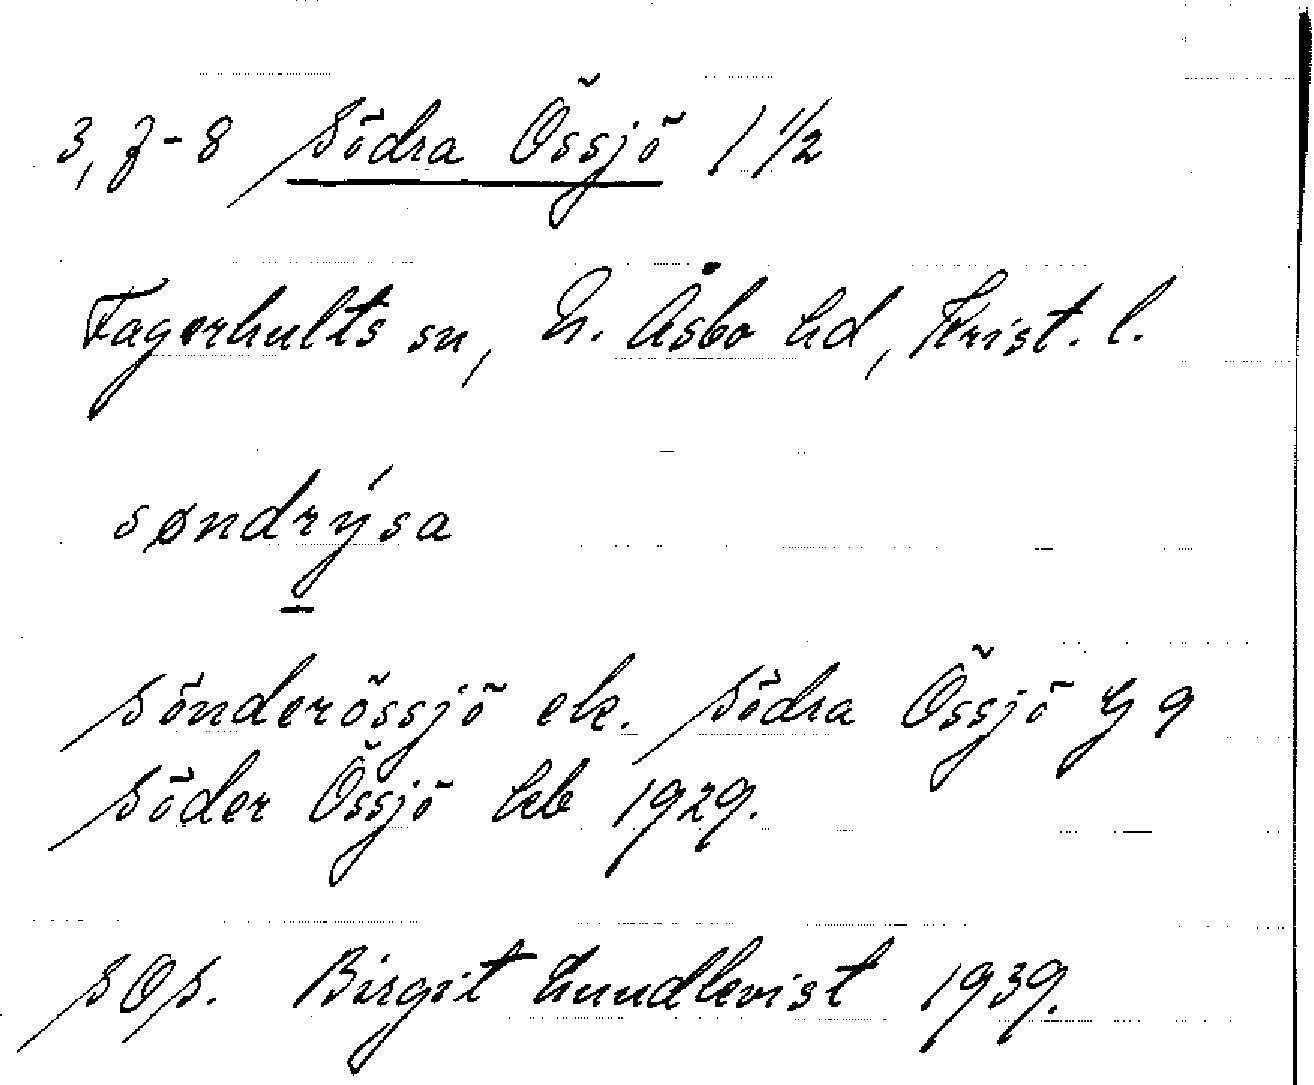 3, 7-8 Södra Össjö 1 1/2
Fagerhults sn, N. Åsbo hd, Krist. l.
søndrýsa
Sönderössjö ek. Södra Össjö G 9
Söder Össjö kb 1929.
SOS. Birgit Lundkvist 1939.